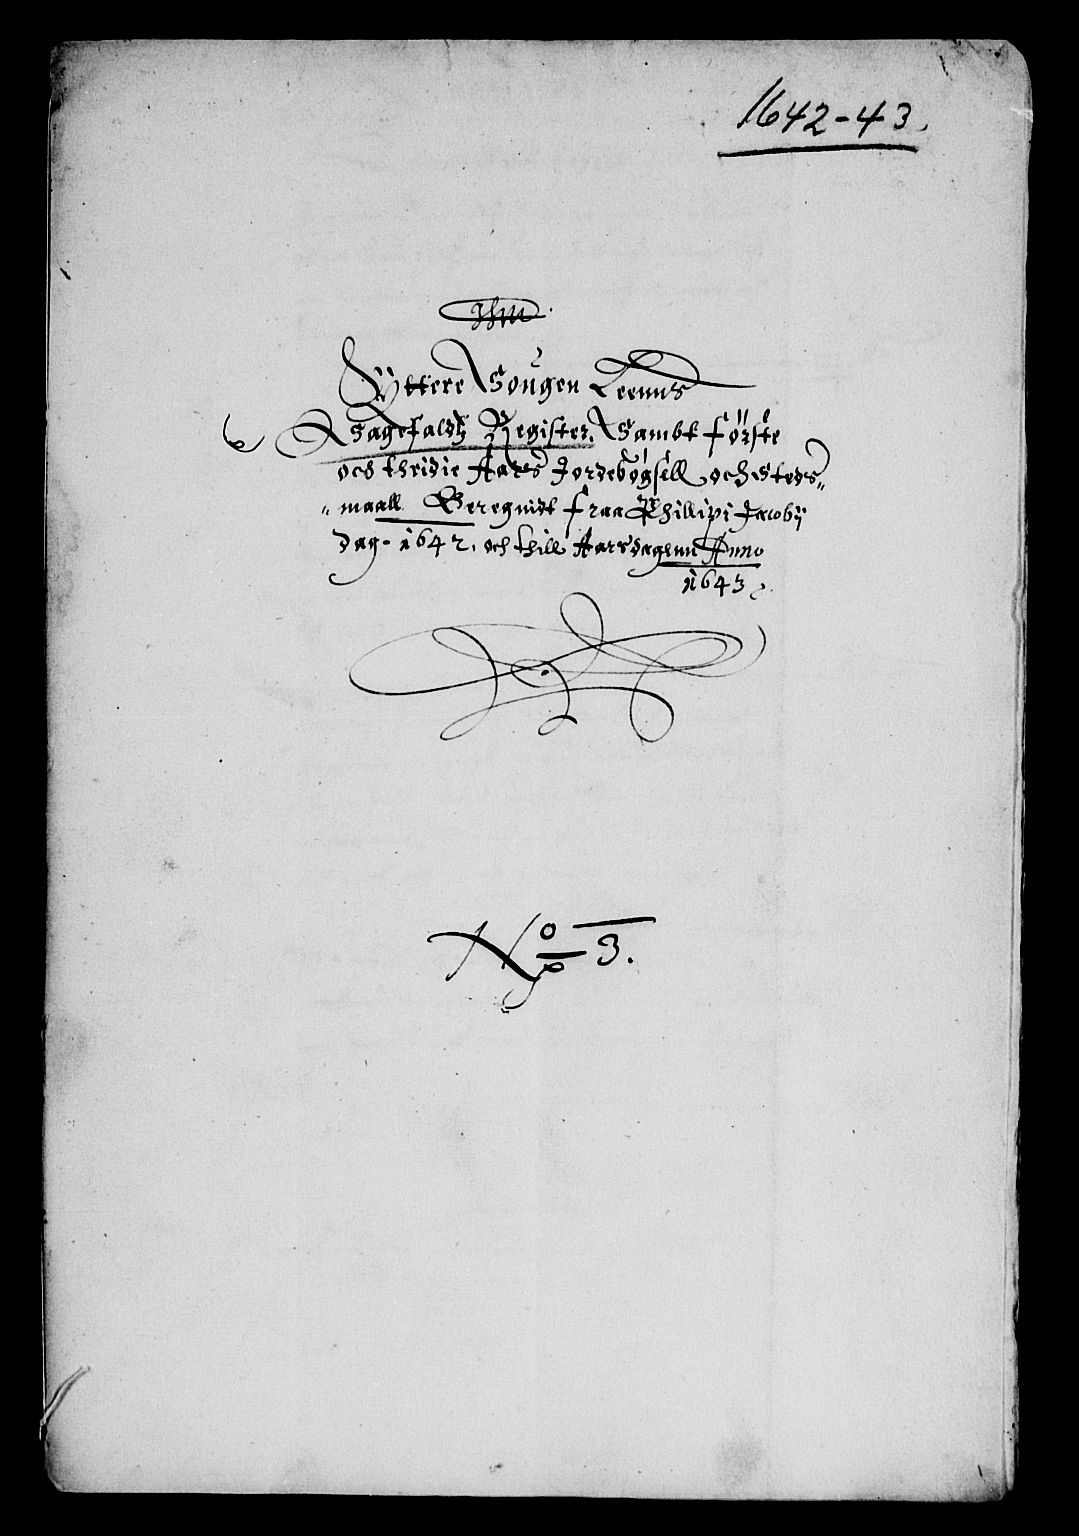 1642-43.
Ihm.
Ÿttere Sougen Leenns
Sagefaldtz Register, Sambt første
och thridie Aars Jordebøgsell och Steds„
„maall. Beregnidt fraa Phillipi Jacobij
dag. 1642, och thill Aarsdagenn Anno
1643
No 3.